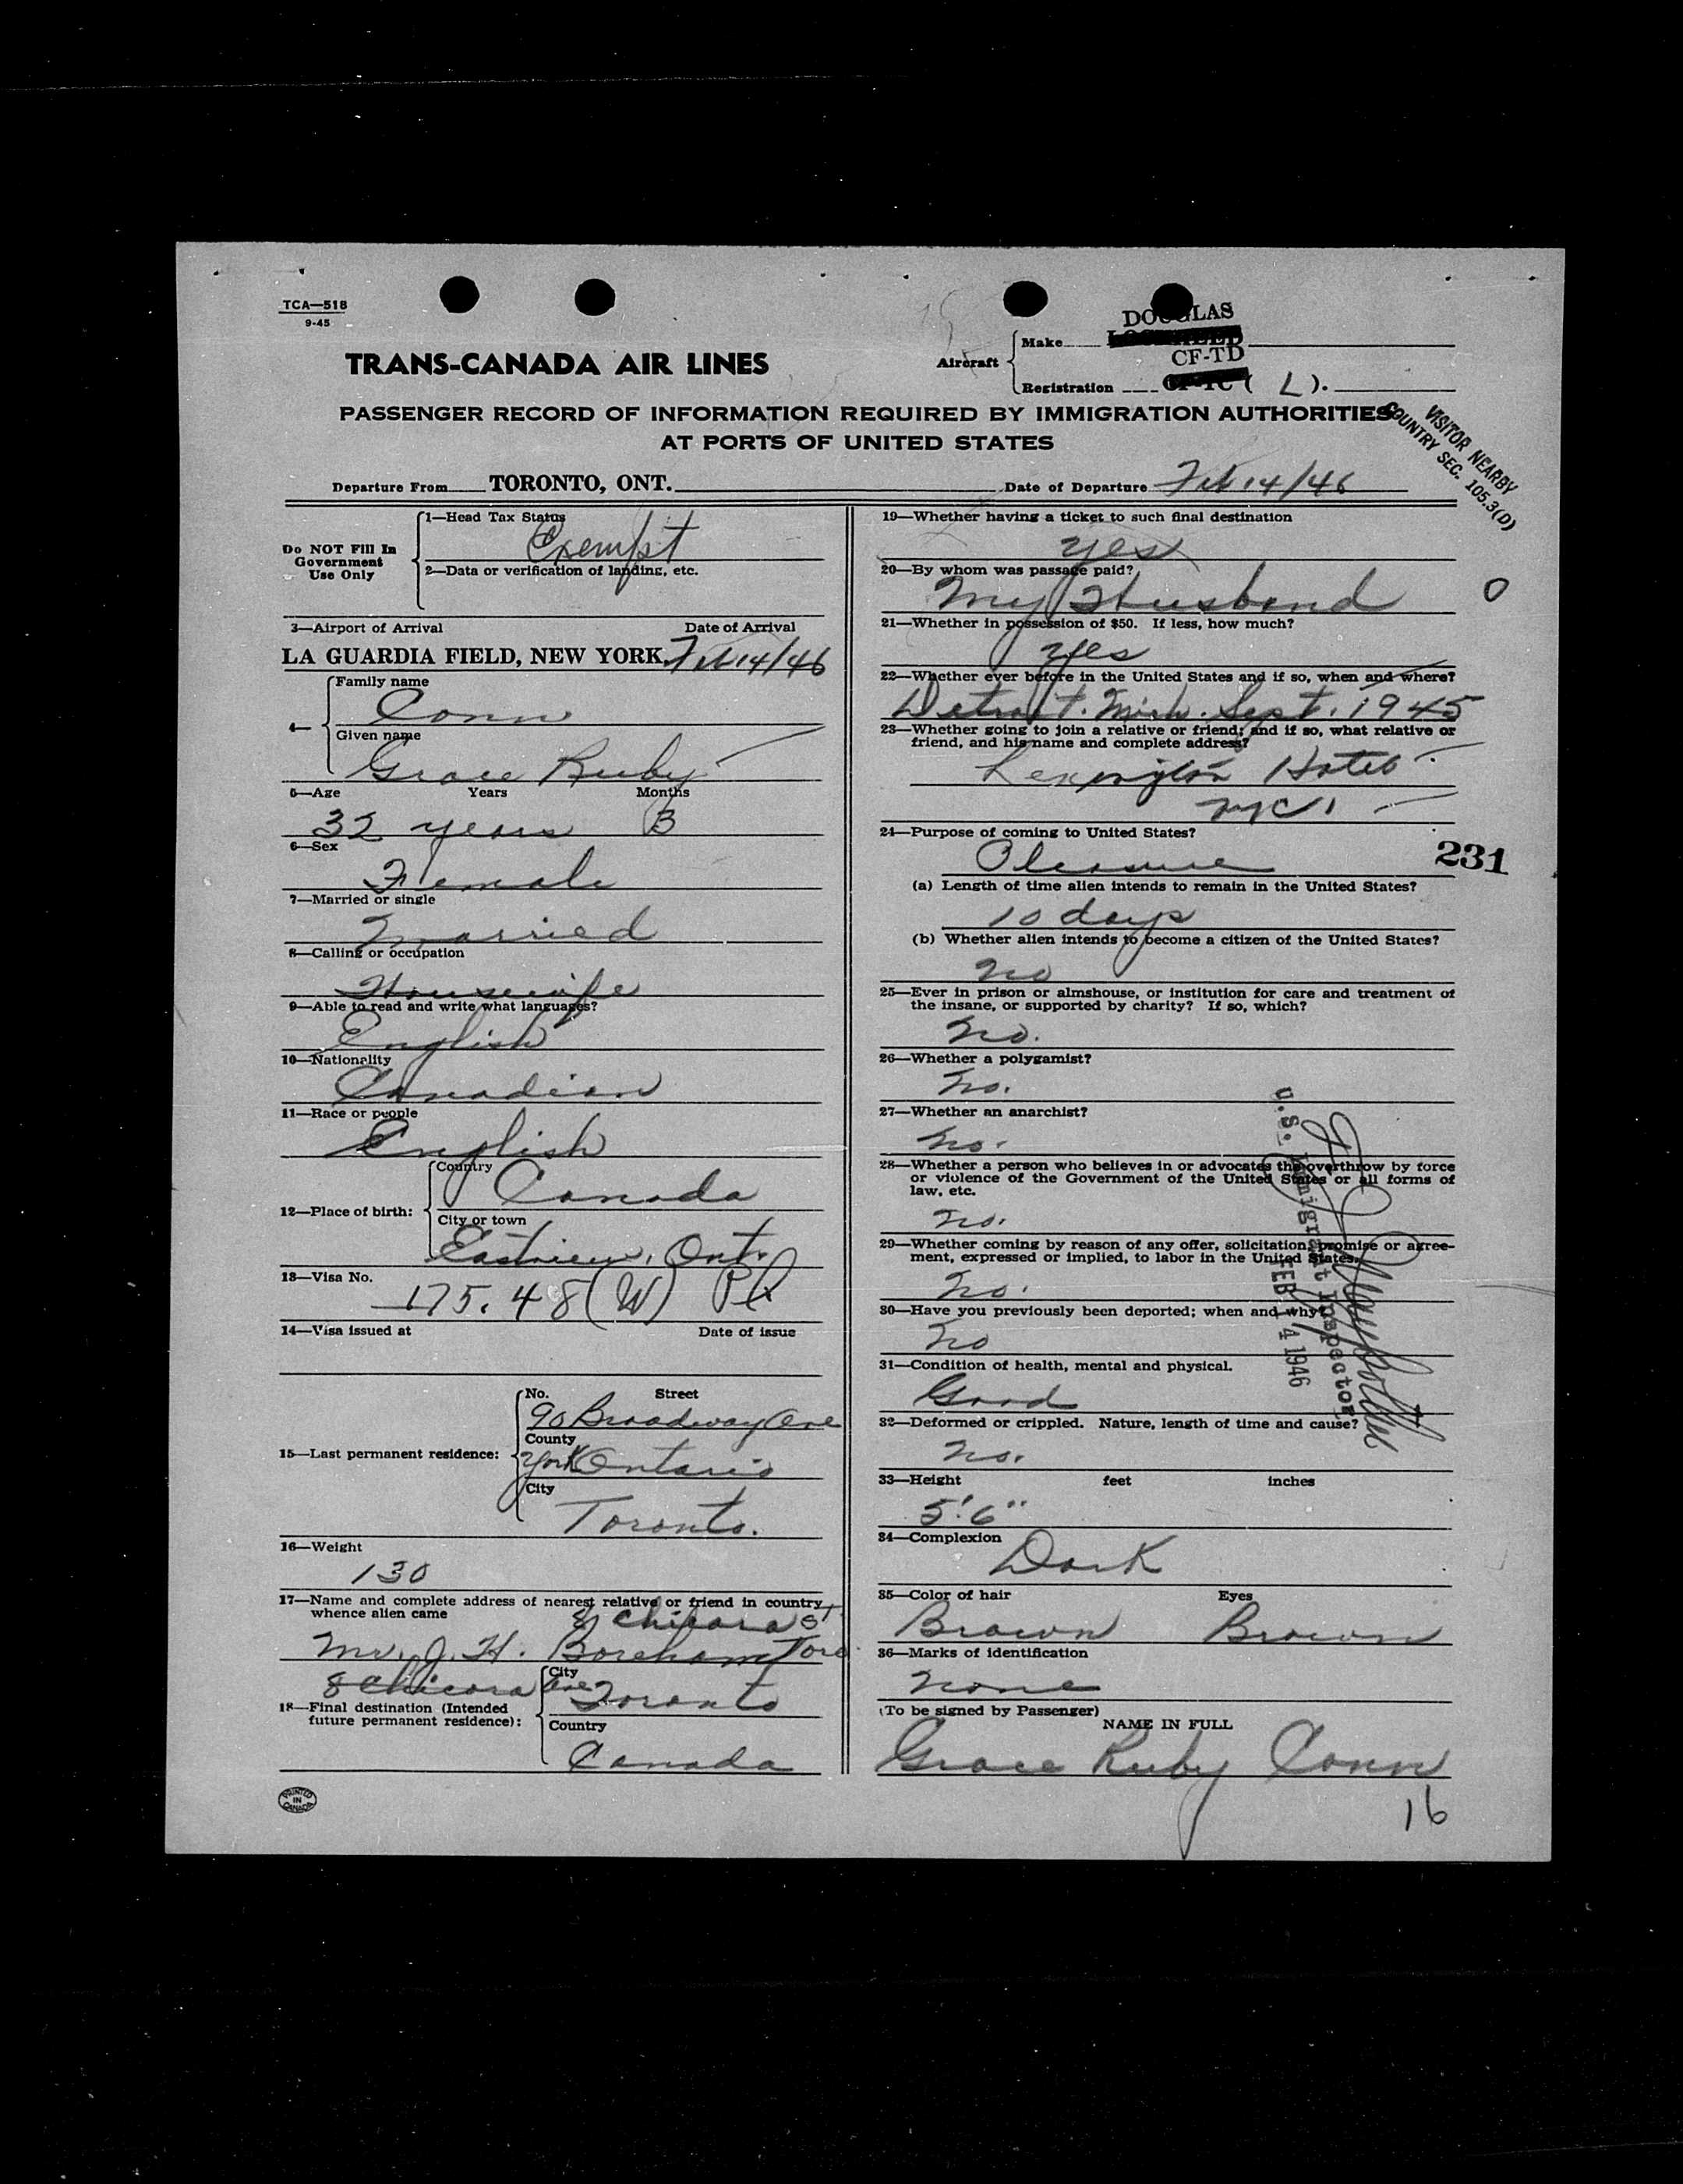 TCA—518
9-45
TRANS-CANADA AIR LINES
Aircraft
Make
DOUGLAS
CF-TD
Registration
( L ).
PASSENGER RECORD OF INFORMATION REQUIRED BY IMMIGRATION AUTHORITIES
AT PORTS OF UNITED STATES
VISITOR NEARBY
COUNTRY SEC. 105.3(D)
Departure From TORONTO, ONT.
Date of Departure Feb 14/46
Do NOT Fill In
Government
Use Only
1—Head Tax Status
Exempt
2—Data or verification of landing, etc.
3—Airport of Arrival Date of Arrival
LA GUARDIA FIELD, NEW YORK. Feb 14/46
4—
Family name
Conn
Given name
Grace Ruby
5—Age Years Months
32 years
6—Sex
Female
7—Married or single
Married
8—Calling or occupation
Housewife
9—Able to read and write what languages?
English
10—Nationality
Canadian
11—Race or people
English
12—Place of birth:
Country
Canada
City or town
Eastview, Ont.
13—Visa No.
175.48 (W)
14—Visa issued at Date of issue
15—Last permanent residence:
No. Street
90 Broadway Ave
County
York Ontario
City
Toronto.
16—Weight
130
17—Name and complete address of nearest relative or friend in country
whence alien came
8 Chicora St
Mr. J. H. Boreham Toro
8 Chicora Ave
18—Final destination (Intended
future permanent residence):
City
Toronto
Country
Canada
PRINTED
IN
CANADA
19—Whether having a ticket to such final destination
Yes
20—By whom was passage paid?
My Husband
0
21—Whether in possession of $50. If less, how much?
Yes
22—Whether ever before in the United States and if so, when and where?
Detroit. Mich. Sept. 1945
23—Whether going to join a relative or friend; and if so, what relative or
friend, and his name and complete address?
Lexington Hotel
NYC
24—Purpose of coming to United States?
Pleasure
231
(a) Length of time alien intends to remain in the United States?
10 days
(b) Whether alien intends to become a citizen of the United States?
No
25—Ever in prison or almshouse, or institution for care and treatment of
the insane, or supported by charity? If so, which?
No.
26—Whether a polygamist?
No.
27—Whether an anarchist?
No.
28—Whether a person who believes in or advocates the overthrow by force
or violence of the Government of the United States or all forms of
law, etc.
No.
29—Whether coming by reason of any offer, solicitation, promise or agree-
ment, expressed or implied, to labor in the United States.
No.
30—Have you previously been deported; when and why?
No
U.S. Immigrant Inspector
FEB 14 1946
31—Condition of health, mental and physical.
Good
32—Deformed or crippled. Nature, length of time and cause?
No.
33—Height feet inches
5'6"
34—Complexion
Dark
35—Color of hair Eyes
Brown Brown
36—Marks of identification
None
(To be signed by Passenger)
NAME IN FULL
Grace Ruby Conn
16